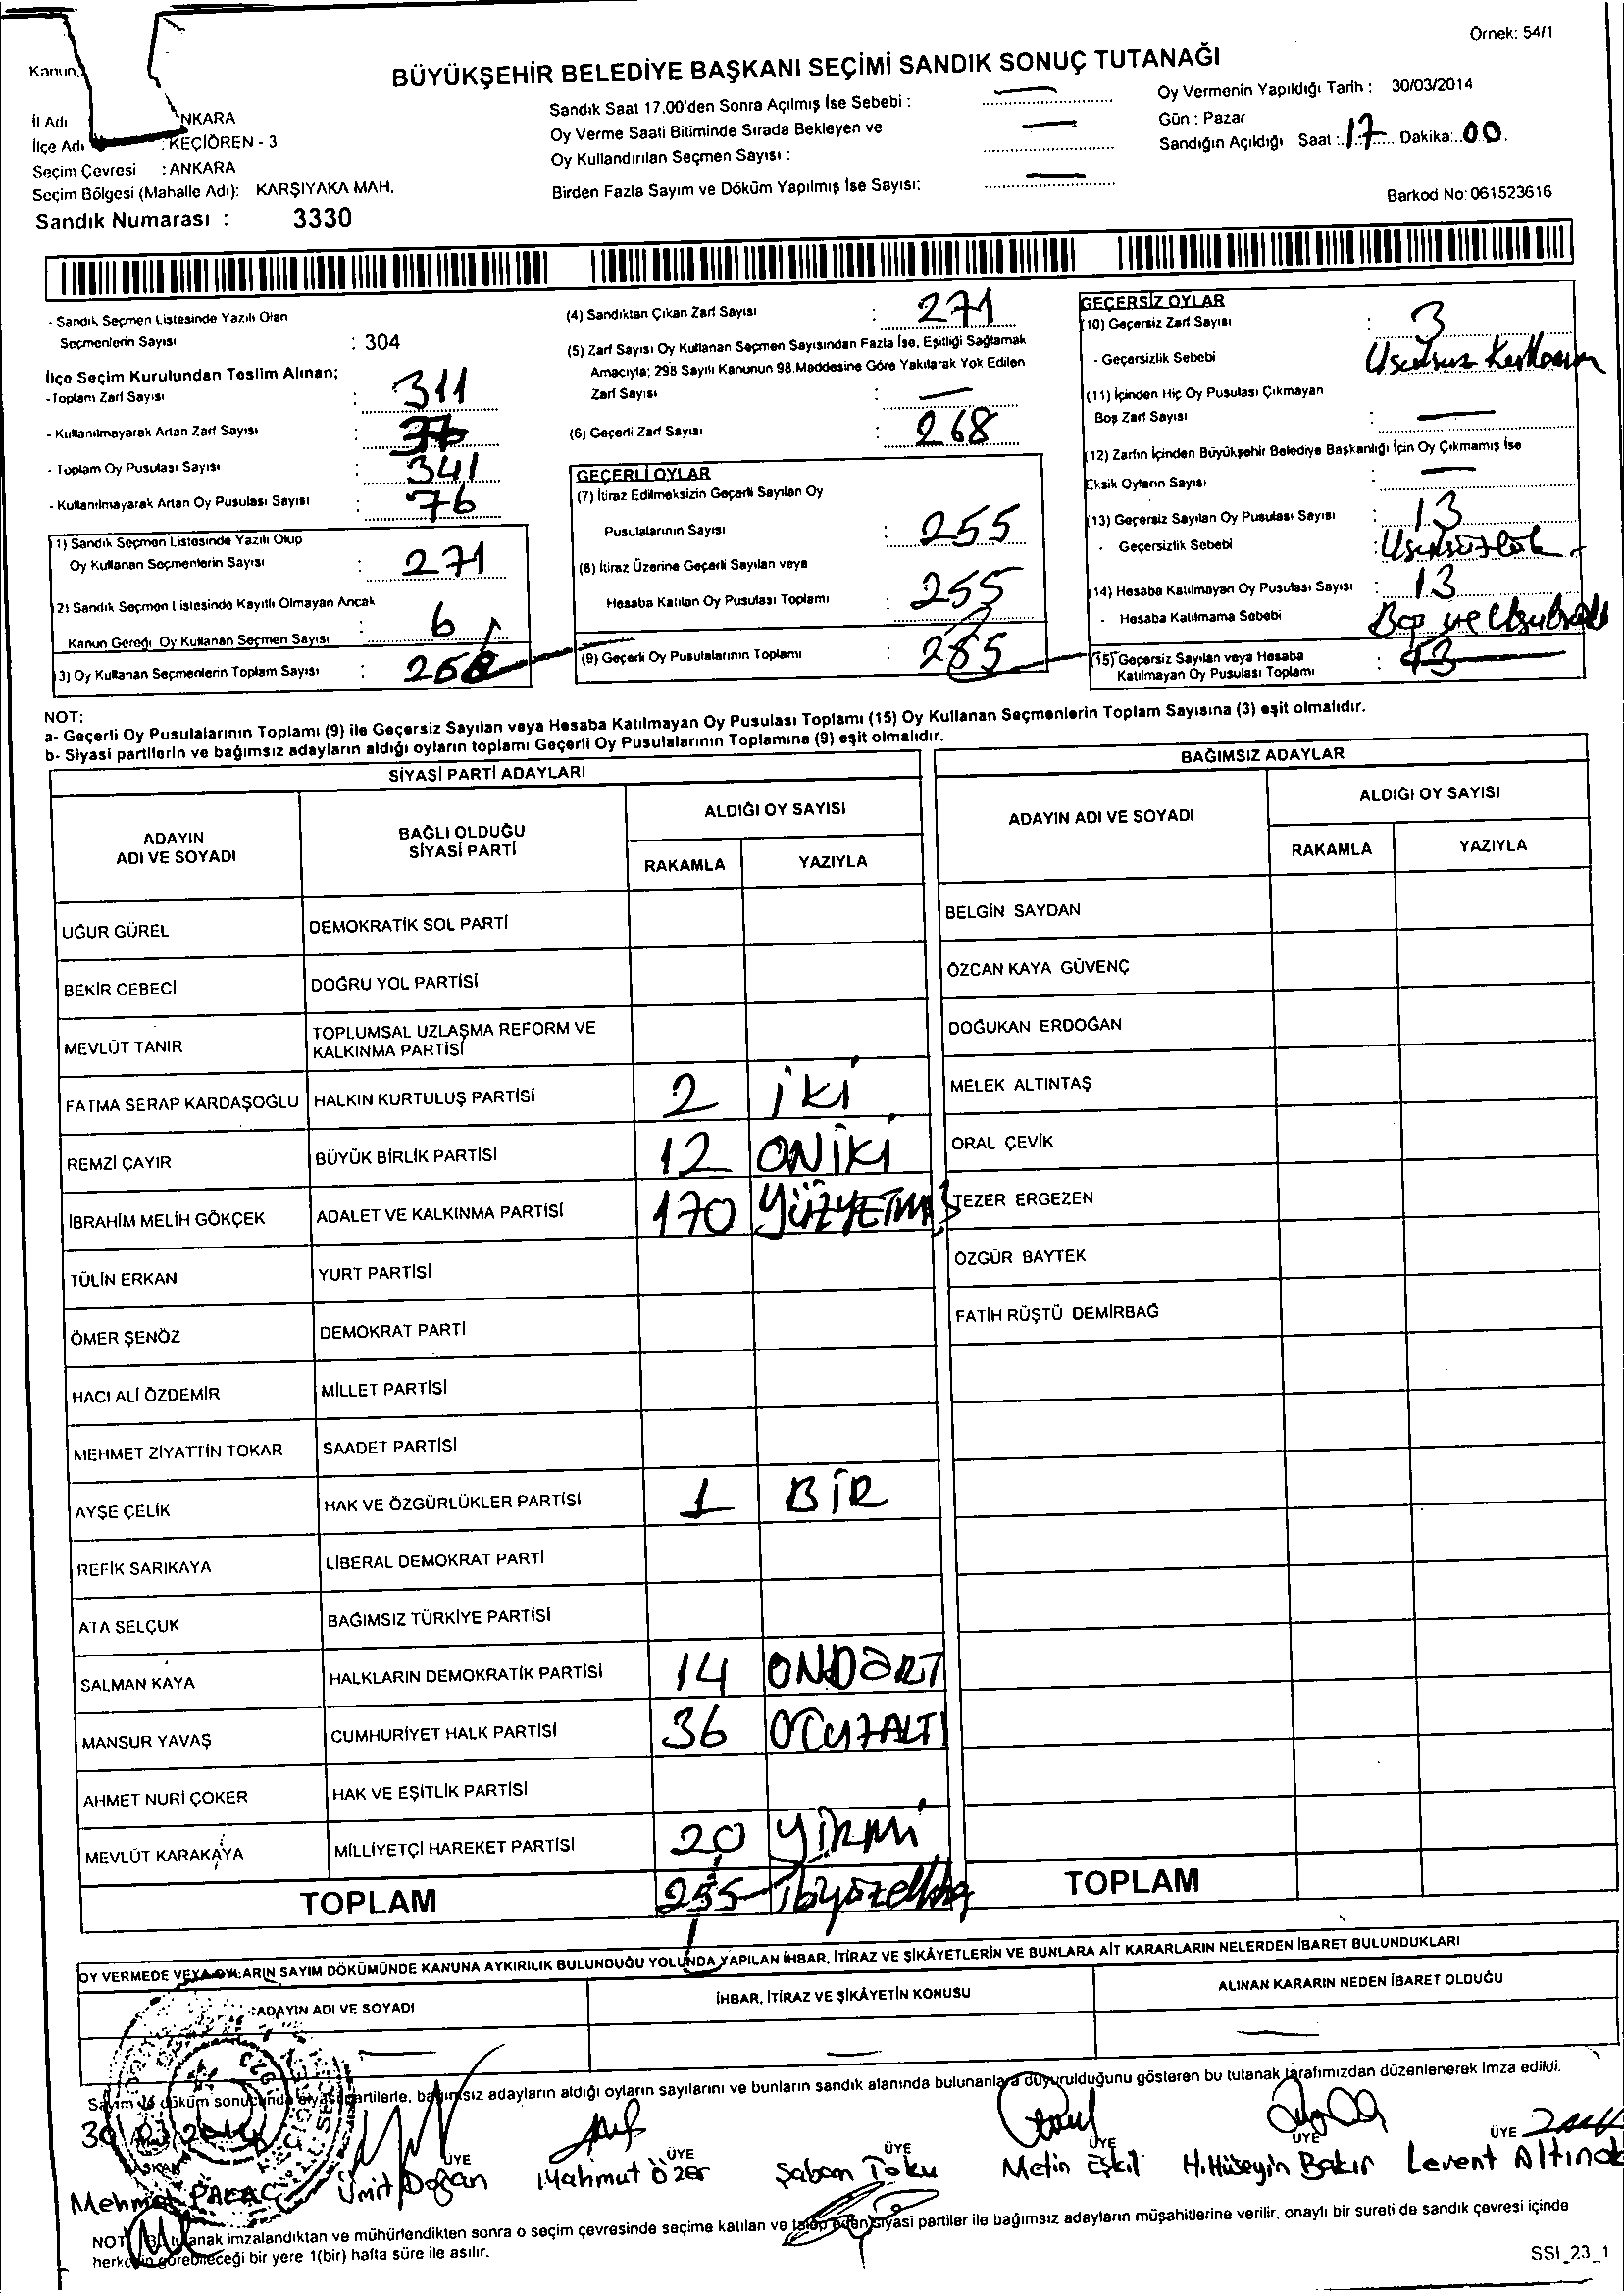 Örnek: 54/1
Kanun
BÜYÜKŞEHİR BELEDİYE BAŞKANI SEÇİMİ SANDIK SONUÇ TUTANAĞI
İl Adı NKARA
İlçe Adı : KEÇİÖREN - 3
Seçim Çevresi : ANKARA
Seçim Bölgesi (Mahalle Adı): KARŞIYAKA MAH.
Sandık Numarası : 3330
Sandık Saat 17.00'den Sonra Açılmış İse Sebebi :
Oy Verme Saati Bitiminde Sırada Bekleyen ve
Oy Kullandırılan Seçmen Sayısı :
Birden Fazla Sayım ve Döküm Yapılmış İse Sayısı:
Oy Vermenin Yapıldığı Tarih : 30/03/2014
Gün : Pazar
Sandığın Açıldığı Saat : 17 Dakika: 00
Barkod No: 061523616
- Sandık Seçmen Listesinde Yazılı Olan
Seçmenlerin Sayısı : 304
İlçe Seçim Kurulundan Teslim Alınan;
- Toplam Zarf Sayısı : 311
- Kullanılmayarak Artan Zarf Sayısı :
- Toplam Oy Pusulası Sayısı : 341
- Kullanılmayarak Artan Oy Pusulası Sayısı : 76
1) Sandık Seçmen Listesinde Yazılı Olup
Oy Kullanan Seçmenlerin Sayısı : 271
2) Sandık Seçmen Listesinde Kayıtlı Olmayan Ancak
Kanun Gereği Oy Kullanan Seçmen Sayısı : 6
3) Oy Kullanan Seçmenlerin Toplam Sayısı : 268
(4) Sandıktan Çıkan Zarf Sayısı : 271
(5) Zarf Sayısı Oy Kullanan Seçmen Sayısından Fazla İse, Eşitliği Sağlamak
Amacıyla; 298 Sayılı Kanunun 98.Maddesine Göre Yakılarak Yok Edilen
Zarf Sayısı :
(6) Geçerli Zarf Sayısı : 268
GEÇERLİ OYLAR
(7) İtiraz Edilmeksizin Geçerli Sayılan Oy
Pusulalarının Sayısı : 255
(8) İtiraz Üzerine Geçerli Sayılan veya
Hesaba Katılan Oy Pusulası Toplamı : 255
(9) Geçerli Oy Pusulalarının Toplamı : 255
GEÇERSİZ OYLAR
(10) Geçersiz Zarf Sayısı : 3
- Geçersizlik Sebebi Usulsuz
(11) İçinden Hiç Oy Pusulası Çıkmayan
Boş Zarf Sayısı :
(12) Zarfın İçinden Büyükşehir Belediye Başkanlığı İçin Oy Çıkmamış İse
Eksik Oyların Sayısı :
(13) Geçersiz Sayılan Oy Pusulası Sayısı : 13
- Geçersizlik Sebebi : Usulsüzlük
(14) Hesaba Katılmayan Oy Pusulası Sayısı : 13
- Hesaba Katılmama Sebebi
(15) Geçersiz Sayılan veya Hesaba
Katılmayan Oy Pusulası Toplamı : 13
NOT:
a- Geçerli Oy Pusulalarının Toplamı (9) ile Geçersiz Sayılan veya Hesaba Katılmayan Oy Pusulası Toplamı (15) Oy Kullanan Seçmenlerin Toplam Sayısına (3) eşit olmalıdır.
b- Siyasi partilerin ve bağımsız adayların aldığı oyların toplamı Geçerli Oy Pusulalarının Toplamına (9) eşit olmalıdır.
SİYASİ PARTİ ADAYLARI
ADAYIN ADI VE SOYADI BAĞLI OLDUĞU SİYASİ PARTİ ALDIĞI OY SAYISI
RAKAMLA YAZIYLA
UĞUR GÜREL DEMOKRATİK SOL PARTİ
BEKİR CEBECİ DOĞRU YOL PARTİSİ
MEVLÜT TANIR TOPLUMSAL UZLAŞMA REFORM VE KALKINMA PARTİSİ
FATMA SERAP KARDAŞOĞLU HALKIN KURTULUŞ PARTİSİ 2 İKİ
REMZİ ÇAYIR BÜYÜK BİRLİK PARTİSİ 12 ONİKİ
İBRAHİM MELİH GÖKÇEK ADALET VE KALKINMA PARTİSİ 170 YÜZYETMİŞ
TÜLİN ERKAN YURT PARTİSİ
ÖMER ŞENÖZ DEMOKRAT PARTİ
HACI ALİ ÖZDEMİR MİLLET PARTİSİ
MEHMET ZİYATTİN TOKAR SAADET PARTİSİ
AYŞE ÇELİK HAK VE ÖZGÜRLÜKLER PARTİSİ 1 BİR
REFİK SARIKAYA LİBERAL DEMOKRAT PARTİ
ATA SELÇUK BAĞIMSIZ TÜRKİYE PARTİSİ
SALMAN KAYA HALKLARIN DEMOKRATİK PARTİSİ 14 ONDÖRT
MANSUR YAVAŞ CUMHURİYET HALK PARTİSİ 36 OTUZALTI
AHMET NURİ ÇOKER HAK VE EŞİTLİK PARTİSİ
MEVLÜT KARAKAYA MİLLİYETÇİ HAREKET PARTİSİ 20 YİRMİ
TOPLAM 255 ikiyüzellibeş
BAĞIMSIZ ADAYLAR
ADAYIN ADI VE SOYADI ALDIĞI OY SAYISI
RAKAMLA YAZIYLA
BELGİN SAYDAN
ÖZCAN KAYA GÜVENÇ
DOĞUKAN ERDOĞAN
MELEK ALTINTAŞ
ORAL ÇEVİK
TEZER ERGEZEN
ÖZGÜR BAYTEK
FATİH RÜŞTÜ DEMİRBAĞ
TOPLAM
OY VERMEDE VEYA OYLARIN SAYIM DÖKÜMÜNDE KANUNA AYKIRILIK BULUNDUĞU YOLUNDA YAPILAN İHBAR, İTİRAZ VE ŞİKÂYETLERİN VE BUNLARA AİT KARARLARIN NELERDEN İBARET BULUNDUKLARI
ADAYIN ADI VE SOYADI İHBAR, İTİRAZ VE ŞİKÂYETİN KONUSU ALINAN KARARIN NEDEN İBARET OLDUĞU
Sayım ve döküm sonucunda siyasi partilerle, bağımsız adayların aldığı oyların sayılarını ve bunların sandık alanında bulunanlara duyurulduğunu gösteren bu tutanak tarafımızdan düzenlenerek imza edildi.
30/03/2014
BAŞKAN ÜYE ÜYE ÜYE ÜYE ÜYE ÜYE
Mehmet PALAÇ Ümit Doğan Mahmut Özer Şaban Toku Metin Eşkil H.Hüseyin Bakır Levent Altınok
NOT: Bu tutanak imzalandıktan ve mühürlendikten sonra o seçim çevresinde seçime katılan ve talep eden siyasi partiler ile bağımsız adayların müşahitlerine verilir, onaylı bir sureti de sandık çevresi içinde
herkesin görebileceği bir yere 1(bir) hafta süre ile asılır.
SSI_23_1